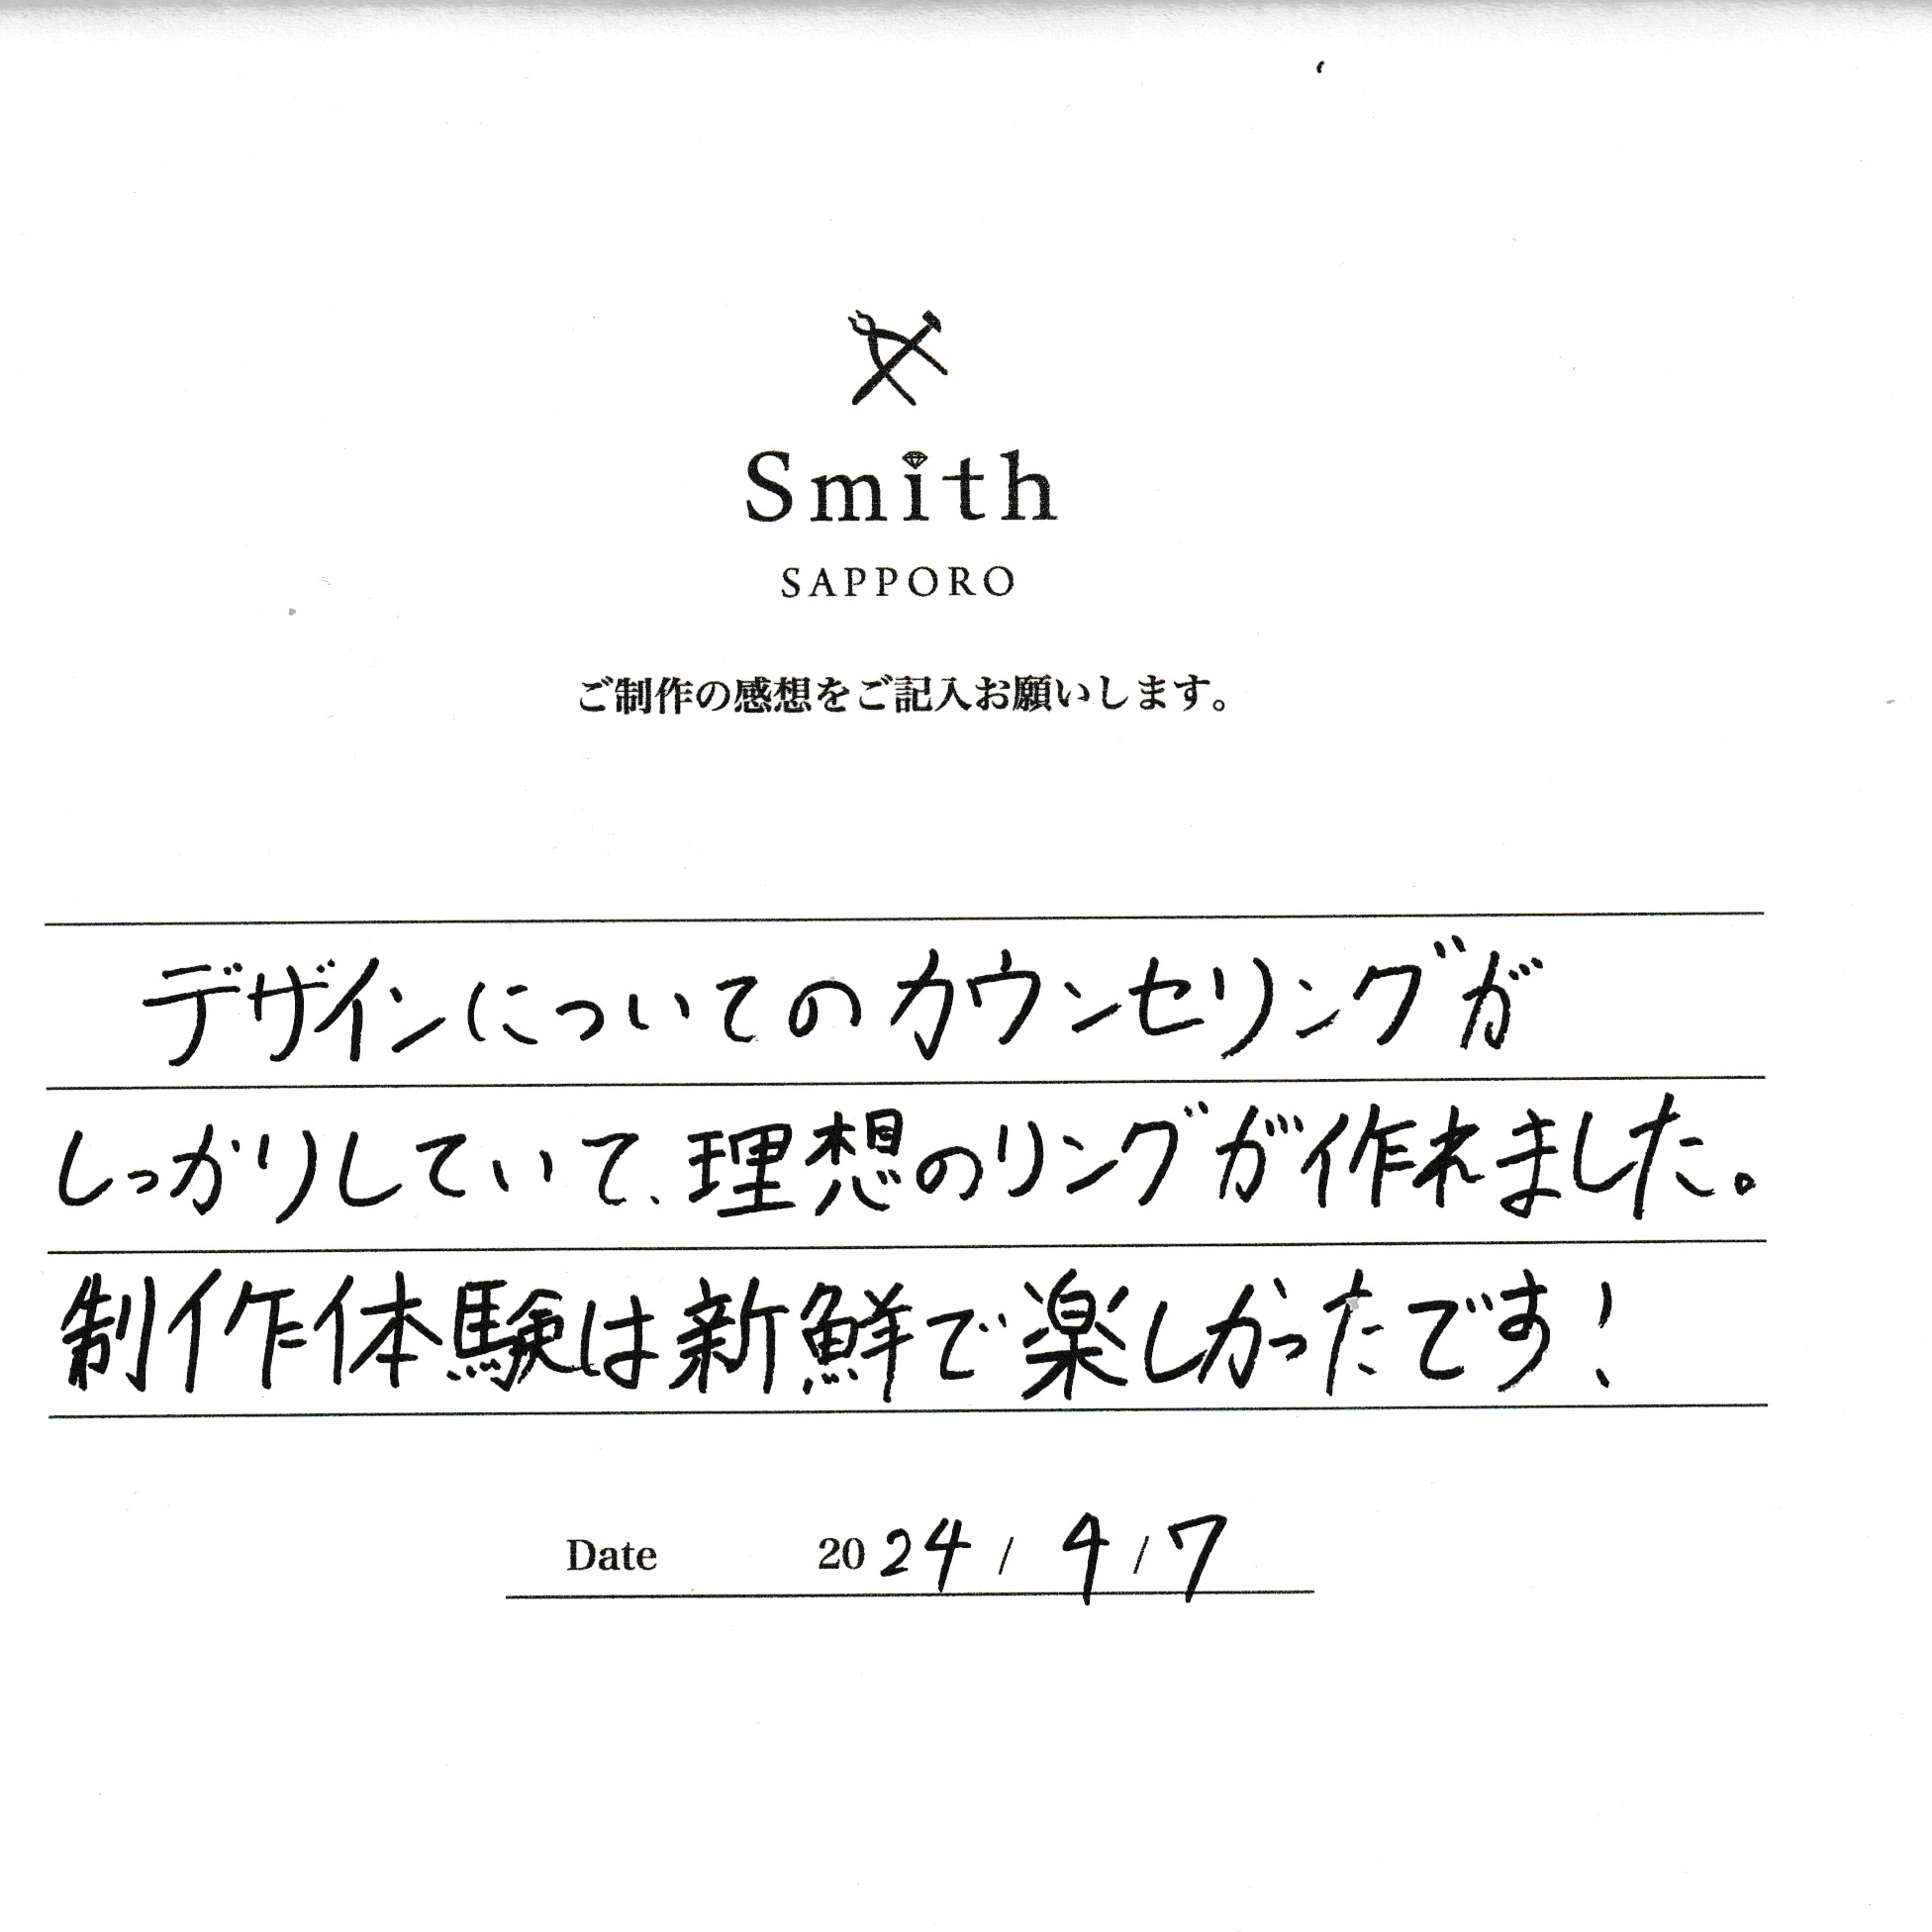 Smith
SAPPORO
ご制作の感想をご記入お願いします。
デザインについてのカウンセリングが
しっかりしていて、理想のリングが作れました。
制作体験は新鮮で楽しかったです!
Date 2024 / 4 / 7